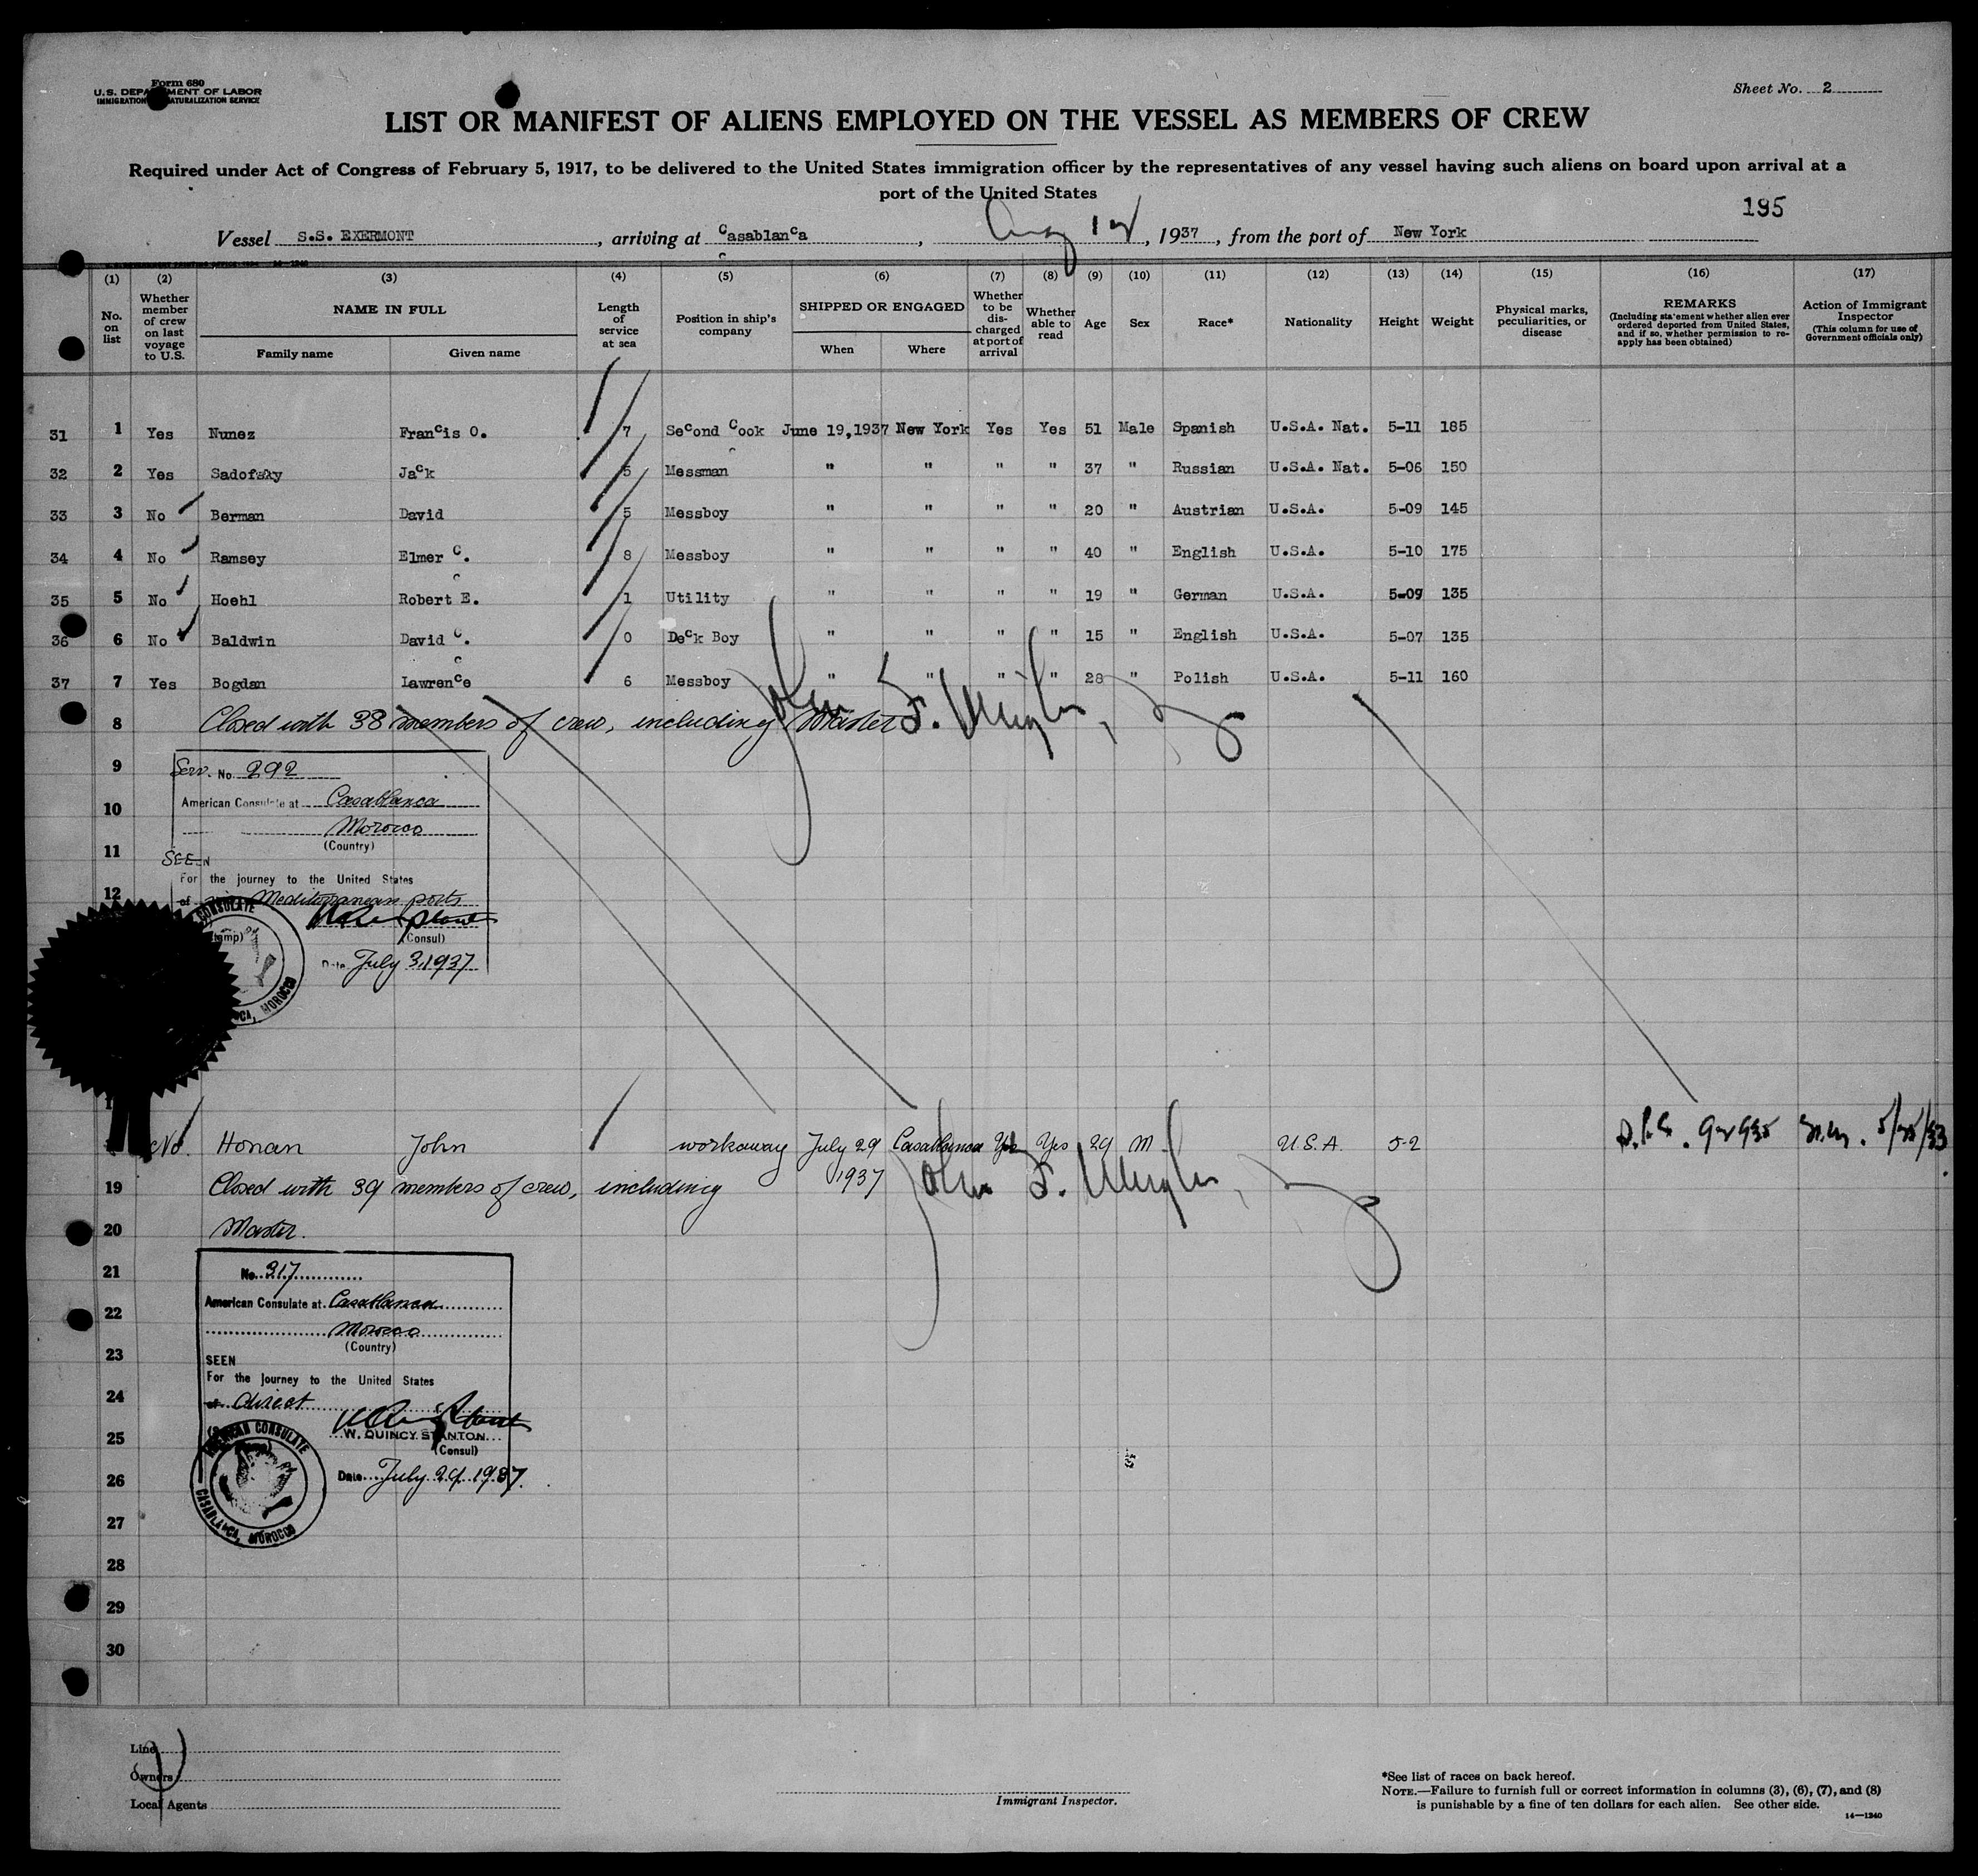 Form 680
U.S. DEPARTMENT OF LABOR
IMMIGRATION NATURALIZATION SERVICE
Sheet No. 2
LIST OR MANIFEST OF ALIENS EMPLOYED ON THE VESSEL AS MEMBERS OF CREW
Required under Act of Congress of February 5, 1917, to be delivered to the United States immigration officer by the representatives of any vessel having such aliens on board upon arrival at a
port of the United States
195
Vessel S.S. EXERMONT, arriving at Casablanca, Aug, 1937, from the port of New York
(1) (2) (3) (4) (5) (6) (7) (8) (9) (10) (11) (12) (13) (14) (15) (16) (17)
No. on list
Whether member of crew on last voyage to U.S.
NAME IN FULL
Family name Given name
Length of service at sea
Position in ship's company
SHIPPED OR ENGAGED
When Where
Whether to be discharged at port of arrival
Whether able to read
Age
Sex
Race*
Nationality
Height
Weight
Physical marks, peculiarities, or disease
REMARKS
(Including statement whether alien ever ordered deported from United States, and if so, whether permission to reapply has been obtained)
Action of Immigrant Inspector
(This column for use of Government officials only)
31 1 Yes Nunez Francis O. 7 Second Cook June 19,1937 New York Yes Yes 51 Male Spanish U.S.A. Nat. 5-11 185
32 2 Yes Sadofsky Jack 5 Messman " " " " 37 " Russian U.S.A. Nat. 5-06 150
33 3 No Berman David 5 Messboy " " " " 20 " Austrian U.S.A. 5-09 145
34 4 No Ramsey Elmer C. 8 Messboy " " " " 40 " English U.S.A. 5-10 175
35 5 No Hoehl Robert E. 1 Utility " " " " 19 " German U.S.A. 5-09 135
36 6 No Baldwin David C. 0 Deck Boy " " " " 15 " English U.S.A. 5-07 135
37 7 Yes Bogdan Lawrence 6 Messboy " " " " 28 " Polish U.S.A. 5-11 160
8 Closed with 38 members of crew, including Master
John F.
9
Serv. No. 292
10
American Consulate at Casablanca
Morocco
11
(Country)
SEEN
For the journey to the United States
12
of Mediterranean ports
(Consul)
Date July 3, 1937
No. Honan John workaway July 29 1937 Casablanca Yes Yes 29 M. U.S.A. 5-2
19 Closed with 39 members of crew, including
John F.
20 Master.
21
No. 317
22
American Consulate at Casablanca
Morocco
(Country)
23
SEEN
For the Journey to the United States
24
of direct
W. QUINCY STANTON
25
(Consul)
AMERICAN CONSULATE
CASABLANCA, MOROCCO
26
Date July 29, 1937.
27
28
29
30
Line
Owners
Local Agents
Immigrant Inspector.
*See list of races on back hereof.
NOTE.—Failure to furnish full or correct information in columns (3), (6), (7), and (8)
is punishable by a fine of ten dollars for each alien. See other side.
14—1240